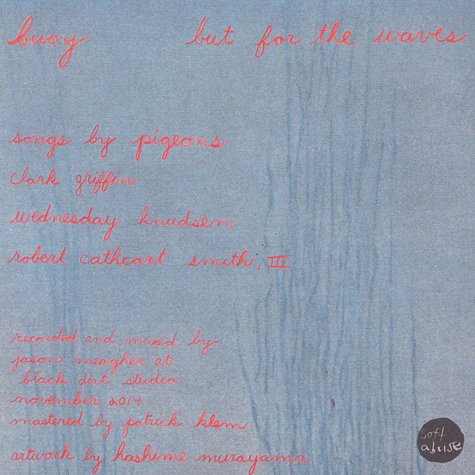 buoy but for the waves
songs by pigeons
clark griffin
wednesday knudsen
robert cathcart smith, III
recorded and mixed by
jason meagher at
black dirt studio
november 2014
mastered by patrick klem
artwork by hashime murayama
soft
abuse